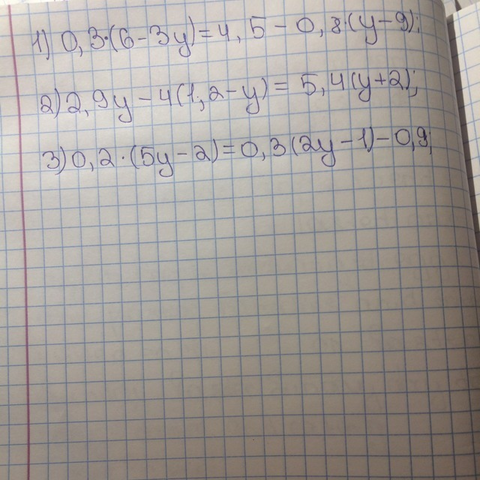 1) 0,3·(6-3y)=4,5-0,8·(y-9);
2) 2,9y-4(1,2-y)=5,4(y+2);
3) 0,2·(5y-2)=0,3(2y-1)-0,9;